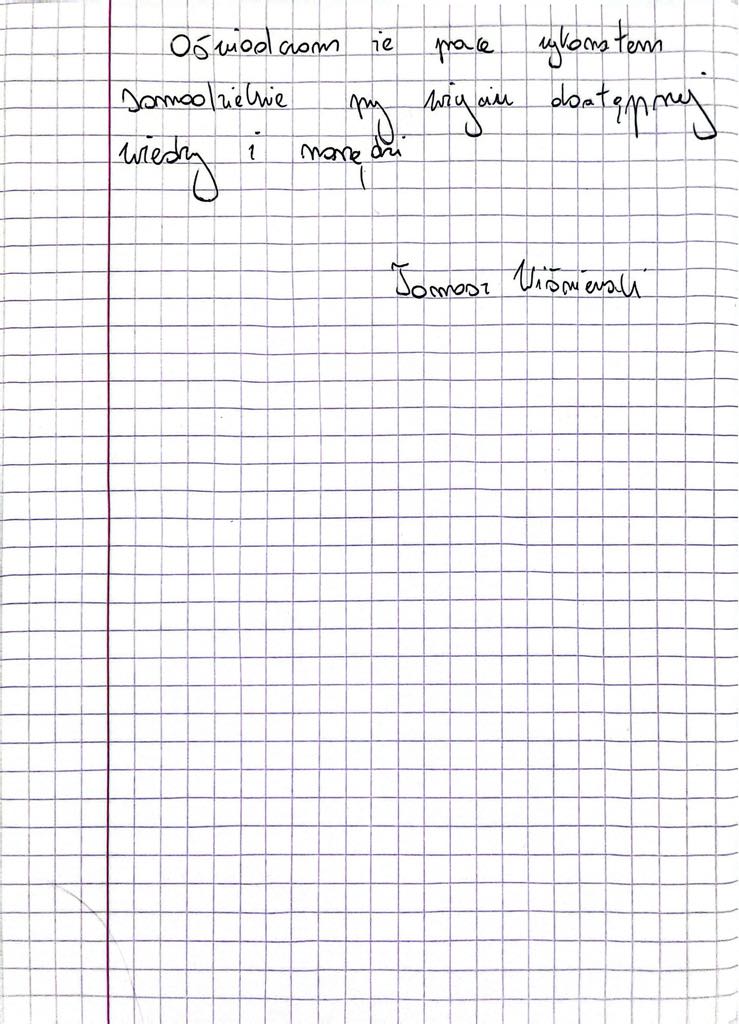 Oświadczam że pracę wykonałem
samodzielnie przy użyciu dostępnej
wiedzy i narzędzi
Tomasz Wiśniewski